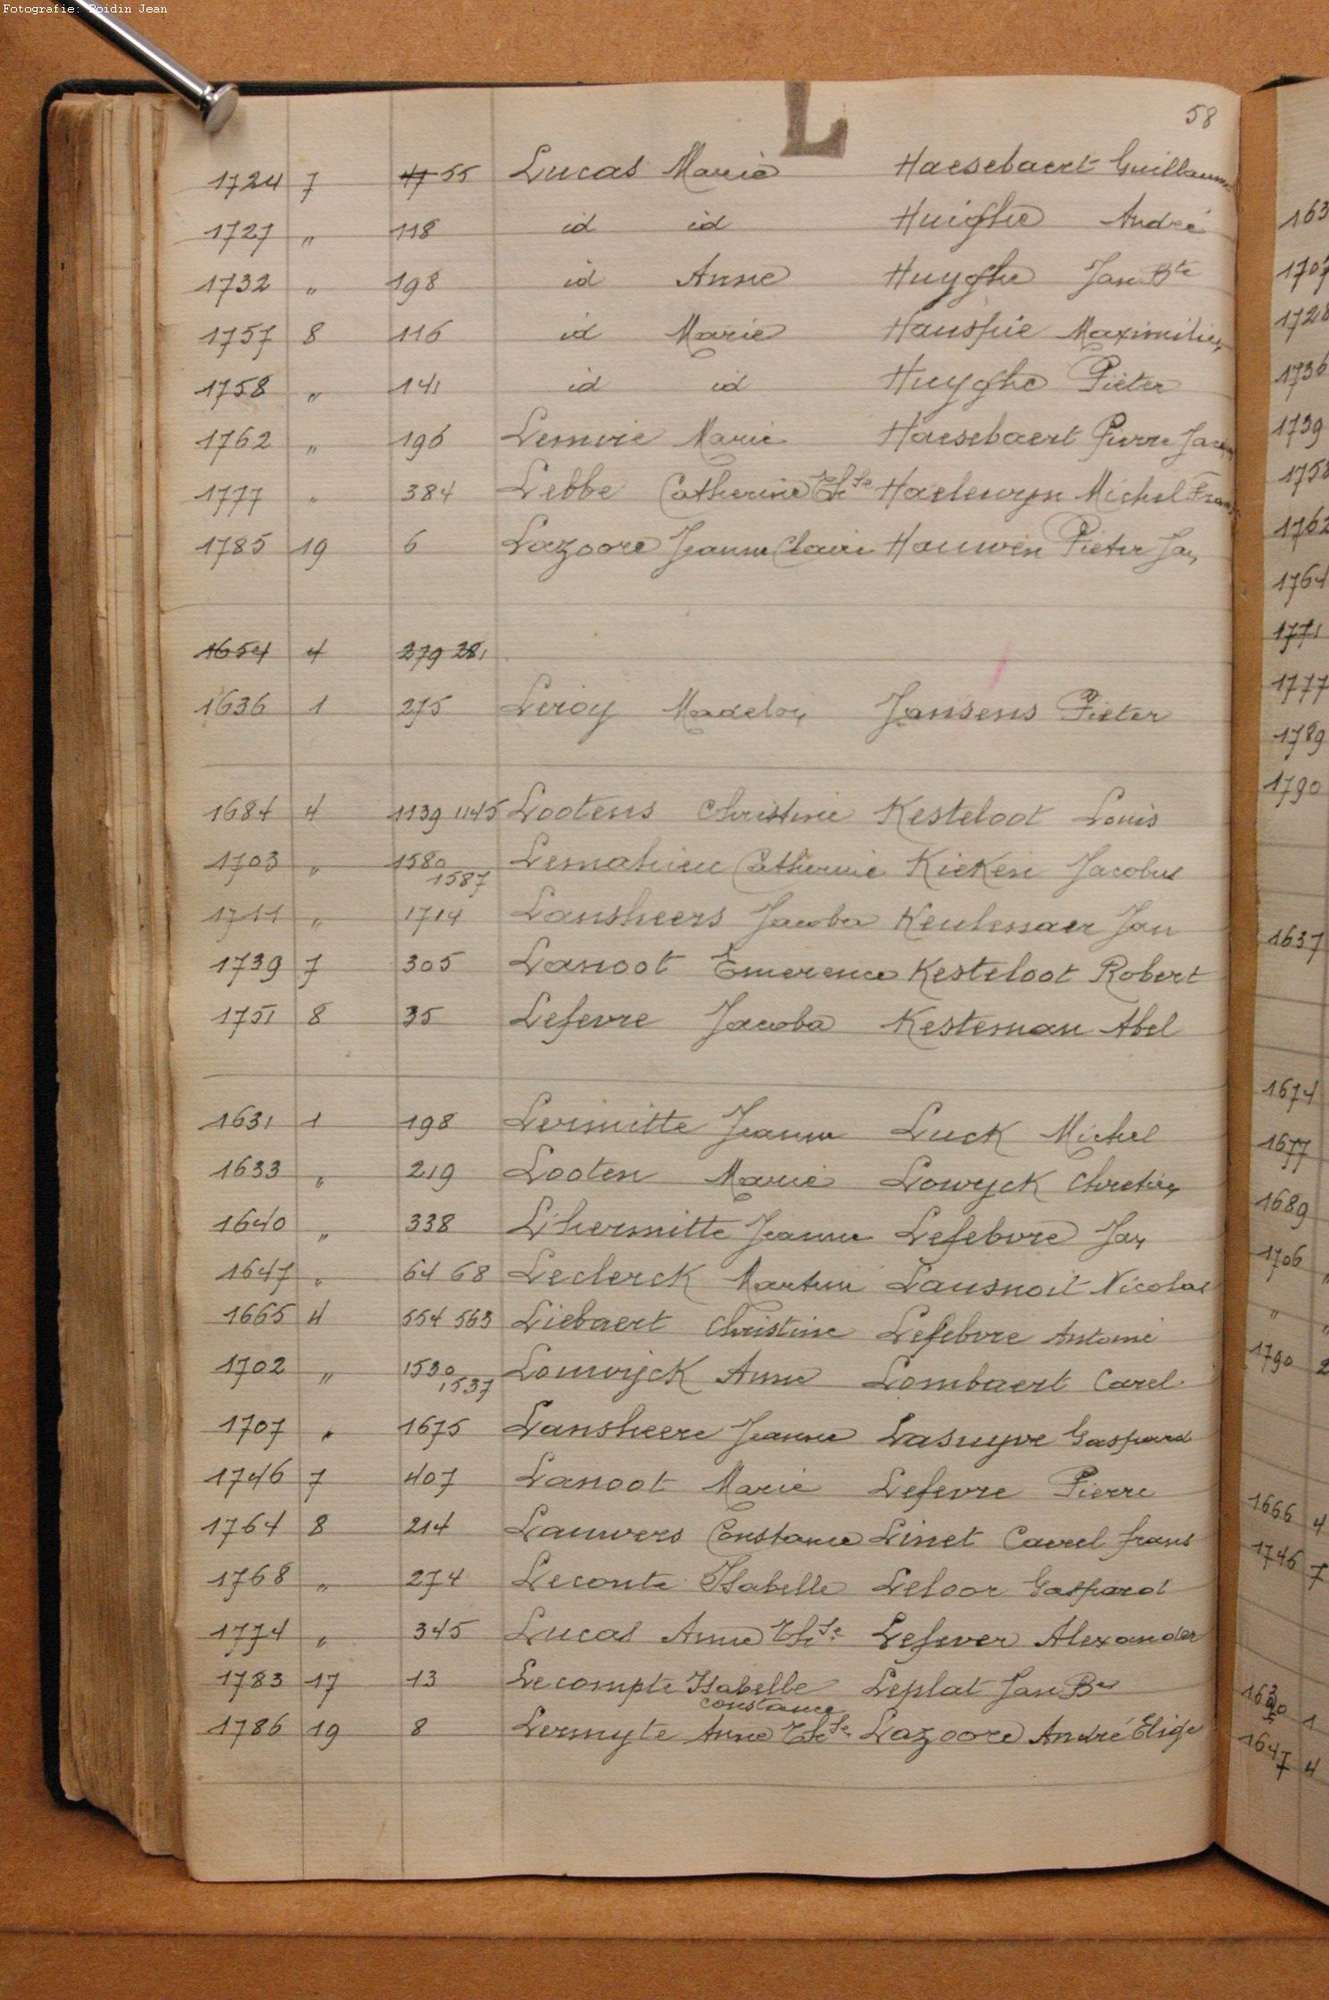 Fotografie: Poidin Jean
L
58
1724 7 47 55 Lucas Marie Haesebaert Guillaume
1727 " 118 id id Huighe André
1732 " 198 id Anne Huyghe Jan Bte
1757 8 116 id Marie Hauspie Maximilien
1758 " 141 id id Huyghe Pieter
1762 " 196 Lemire Marie Haesebaert Pierre Jacq
1777 " 384 Lebbe Catherine Thse Haelewyn Michel Frans
1785 19 6 Lazoore Jeanne Claire Hauwen Pieter Jan
1654 4 279 281
1636 1 275 Leroy Madelon Jansens Pieter
1684 4 1139 1145 Lootens Christine Kesteloot Louis
1703 " 1580 1587 Lemahieu Catherine Kieken Jacobus
1711 " 1714 Lansheers Jacoba Keulenaer Jan
1739 7 305 Lanoot Emerence Kesteloot Robert
1751 8 35 Lefevre Jacoba Kesteman Abel
1631 1 198 Lermitte Jeanne Luck Michel
1633 " 219 Looten Marie Lowyck Chretien
1640 " 338 L'hermitte Jeanne Lefebvre Jan
1647 " 64 68 Leclerck Martine Lausnoit Nicolas
1665 4 554 563 Liebaert Christine Lefebvre Antoine
1702 " 1530 1537 Louwyck Anne Lombaert Carel
1707 " 1675 Lansheere Jeanne Lasuyve Gaspard
1746 7 407 Lanoot Marie Lefevre Pierre
1764 8 214 Lauwers Constance Linet Carel frans
1768 " 274 Leconte Isabelle Leloor Gaspard
1774 " 345 Lucas Anne Thse Lefever Alexander
1783 17 13 Lecompte Isabelle constance Leplat Jan Bte
1786 19 8 Lermyte Anne Thse Lazoore André Elige
163
1707
1728
1736
1739
1758
1762
1764
1771
1777
1789
1790
1637
1674
1677
1689
1706 "
" "
1790 2
1666 4
1746 7
1647 4